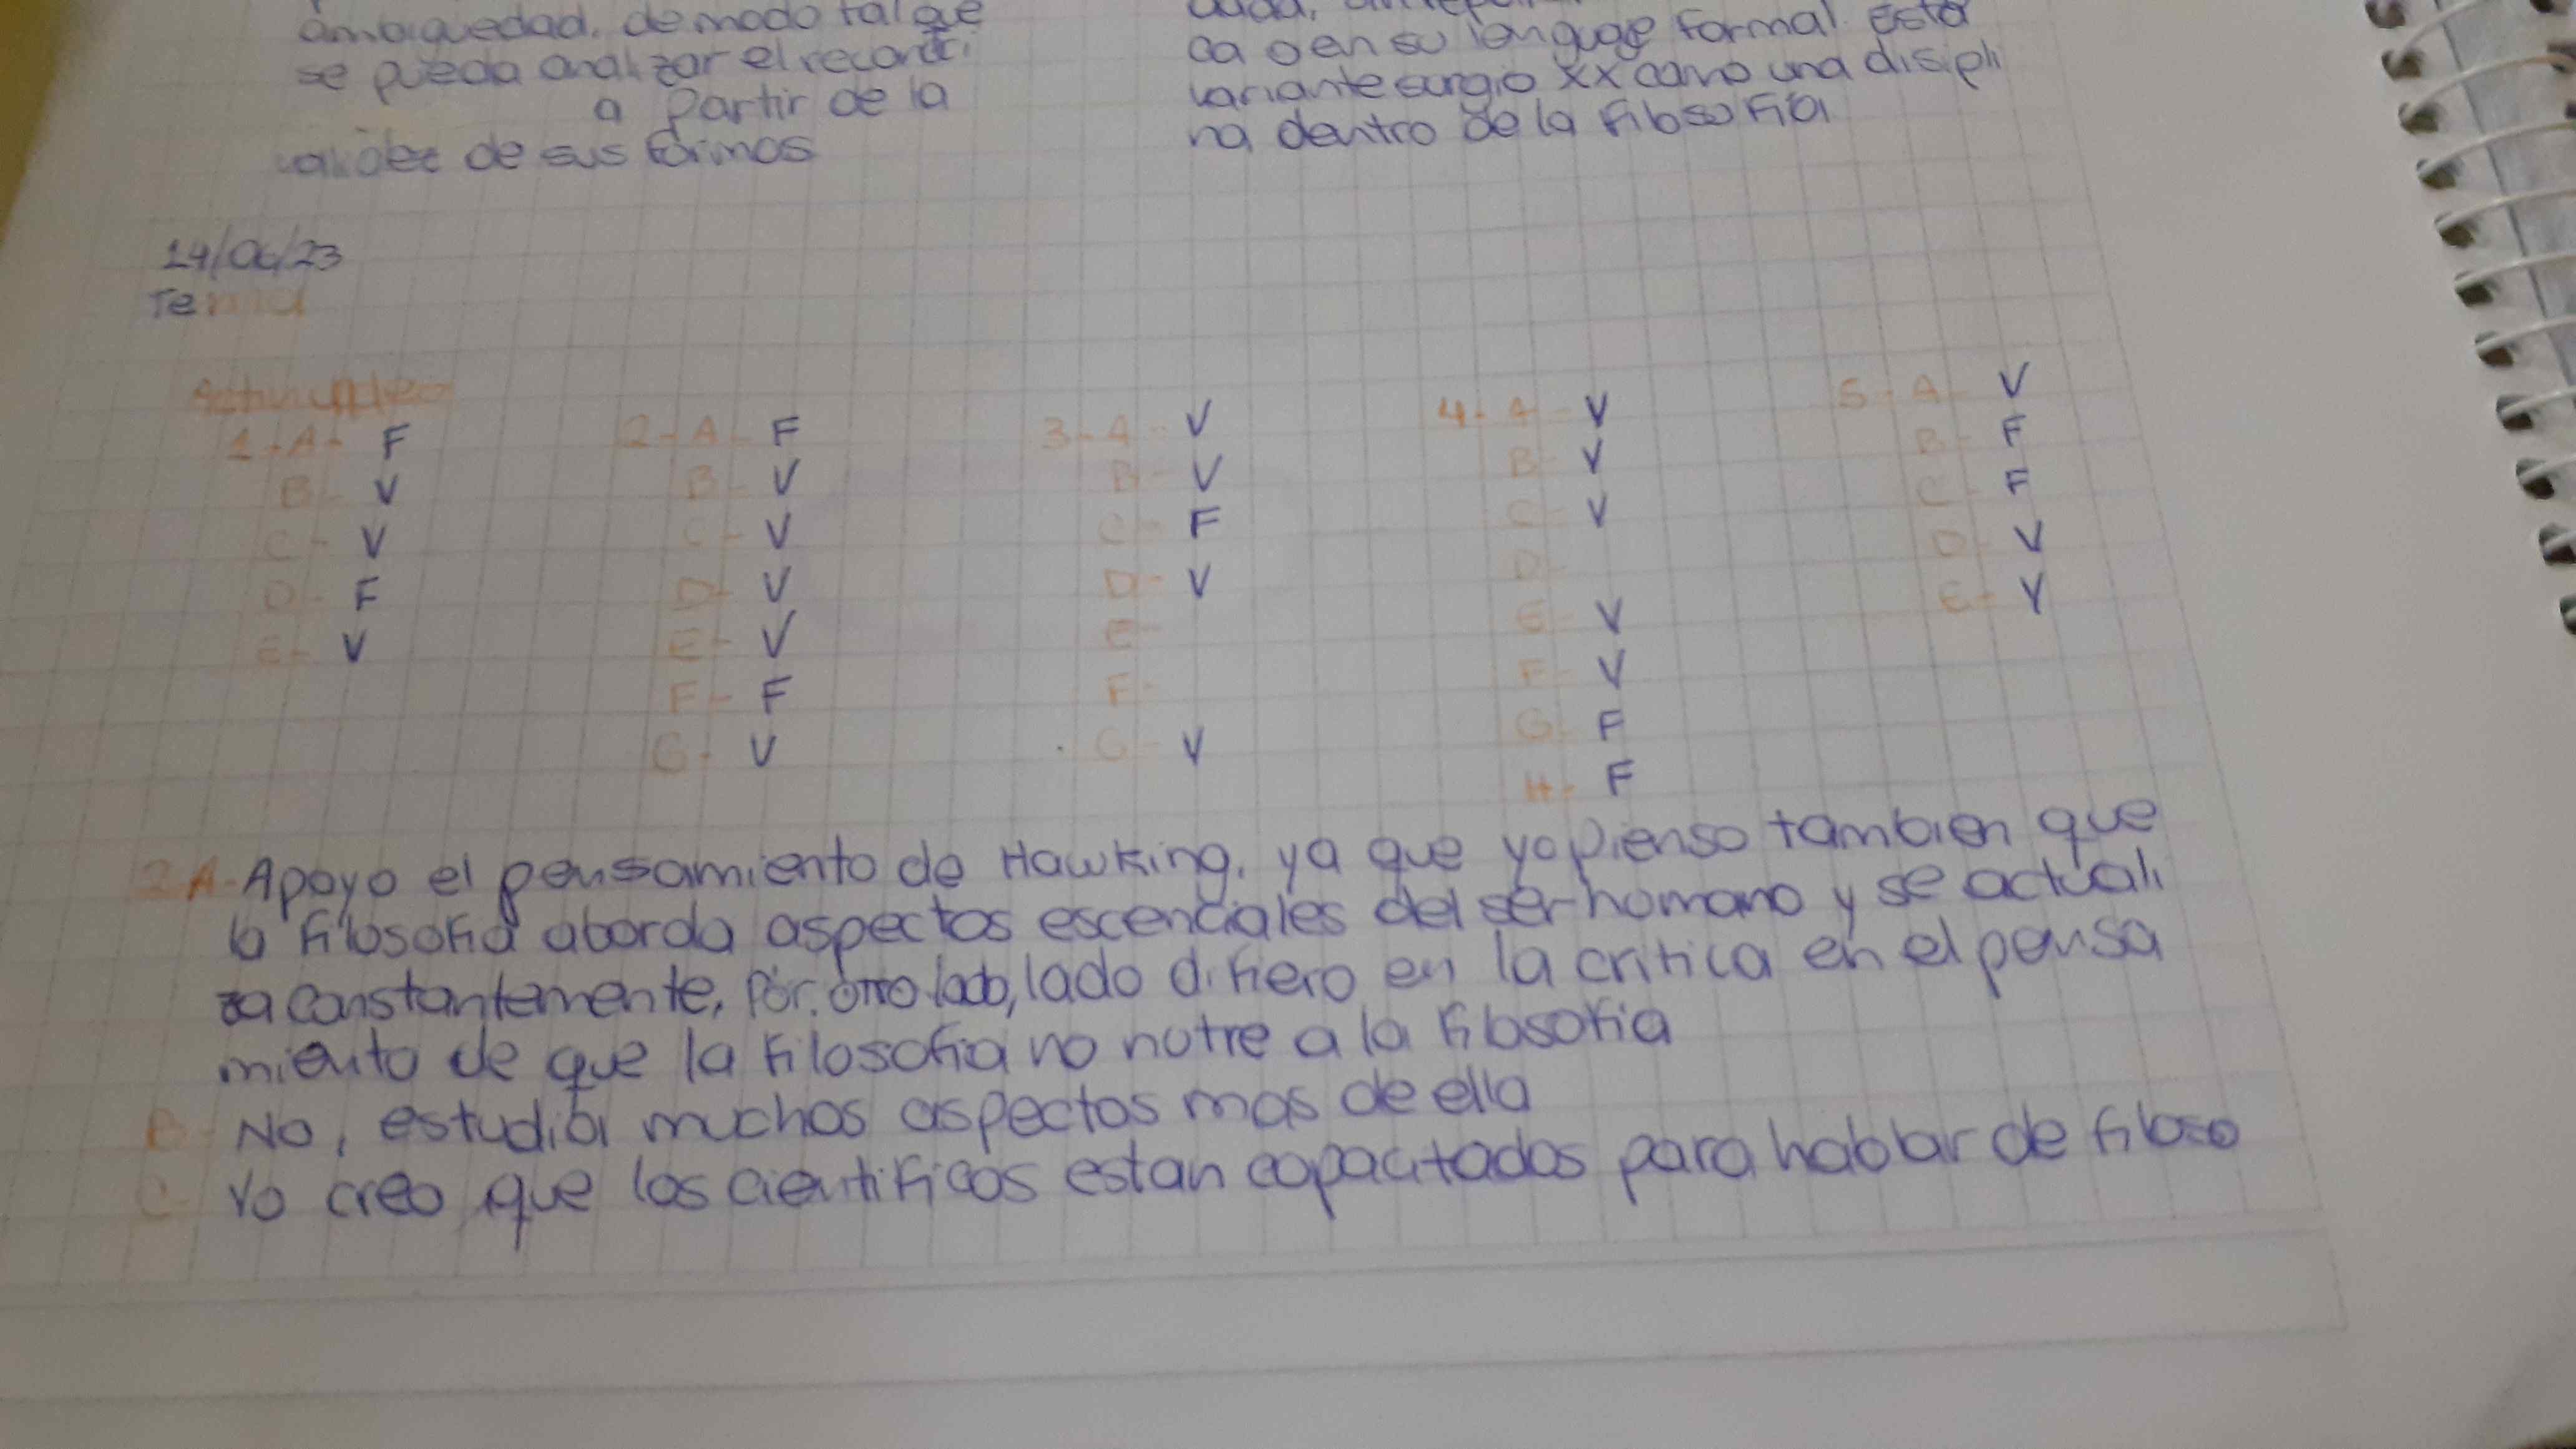 ambiguedad, de modo tal que
se pueda analizar el
a partir de la
validez de sus formas
ca o en su lenguage formal. Esta
variante surgio XX como una disipli
na dentro de la filosofia
14/06/23
Tema
1-A- F
B- V
C- V
D- F
E- V
2-A- F
B- V
C- V
D- V
E- V
F- F
G- V
3-A- V
B- V
C- F
D- V
E-
F-
G- V
4-A- V
B- V
C- V
D-
E- V
F- V
G- F
H- F
5-A- V
B- F
C- F
D- V
E- V
2A- Apoyo el pensamiento de Hawking, ya que yo pienso tambien que
la filosofia aborda aspectos escenciales del ser homano y se actuali
za constantemente, Por otro lado, lado difiero en la critica en el pensa
miento de que la filosofia no nutre a la filosofia
B- No, estudia muchos aspectos mas de ella
C- Yo creo que los cientificos estan capacitados para hablar de filoso